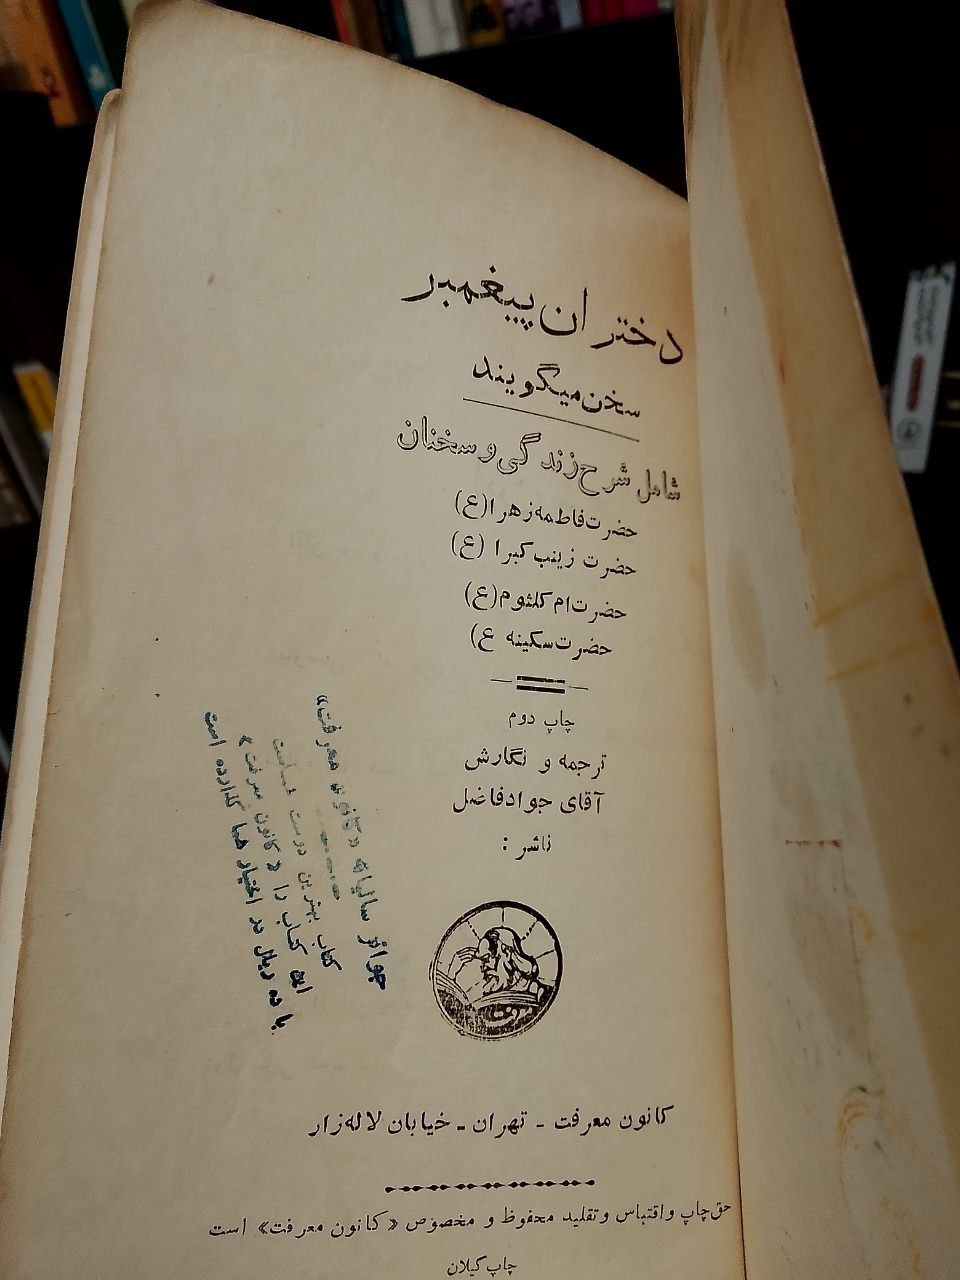 دختران پیغمبر
سخن میگویند
شامل شرح زندگی و سخنان
حضرت فاطمه زهرا (ع)
حضرت زینب کبرا (ع)
حضرت ام کلثوم (ع)
حضرت سکینه ع)
چاپ دوم
ترجمه و نگارش
آقای جواد فاضل
ناشر :
معرفت
کانون معرفت - تهران - خیابان لاله‌زار
حق چاپ و اقتباس و تقلید محفوظ و مخصوص «کانون معرفت» است
چاپ گیلان
جوائز سالیانه «کانون معرفت»
کتاب بهترین دوست شماست
این کتاب را «کانون معرفت»
با ده ریال در اختیار شما گذارده است